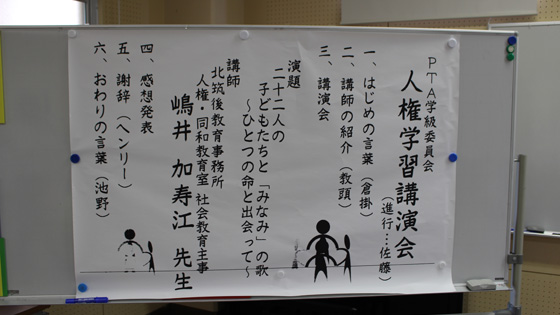 PTA学級委員会
人権学習講演会
(進行…佐藤)
一、はじめの言葉(倉掛)
二、講師の紹介(教頭)
三、講演会
演題
二十二人の
子どもたちと「みなみ」の歌
～ひとつの命と出会って～
講師
北筑後教育事務所
人権・同和教育室 社会教育主事
嶋井 加寿江 先生
四、感想発表
五、謝辞(ヘンリー)
六、おわりの言葉(池野)